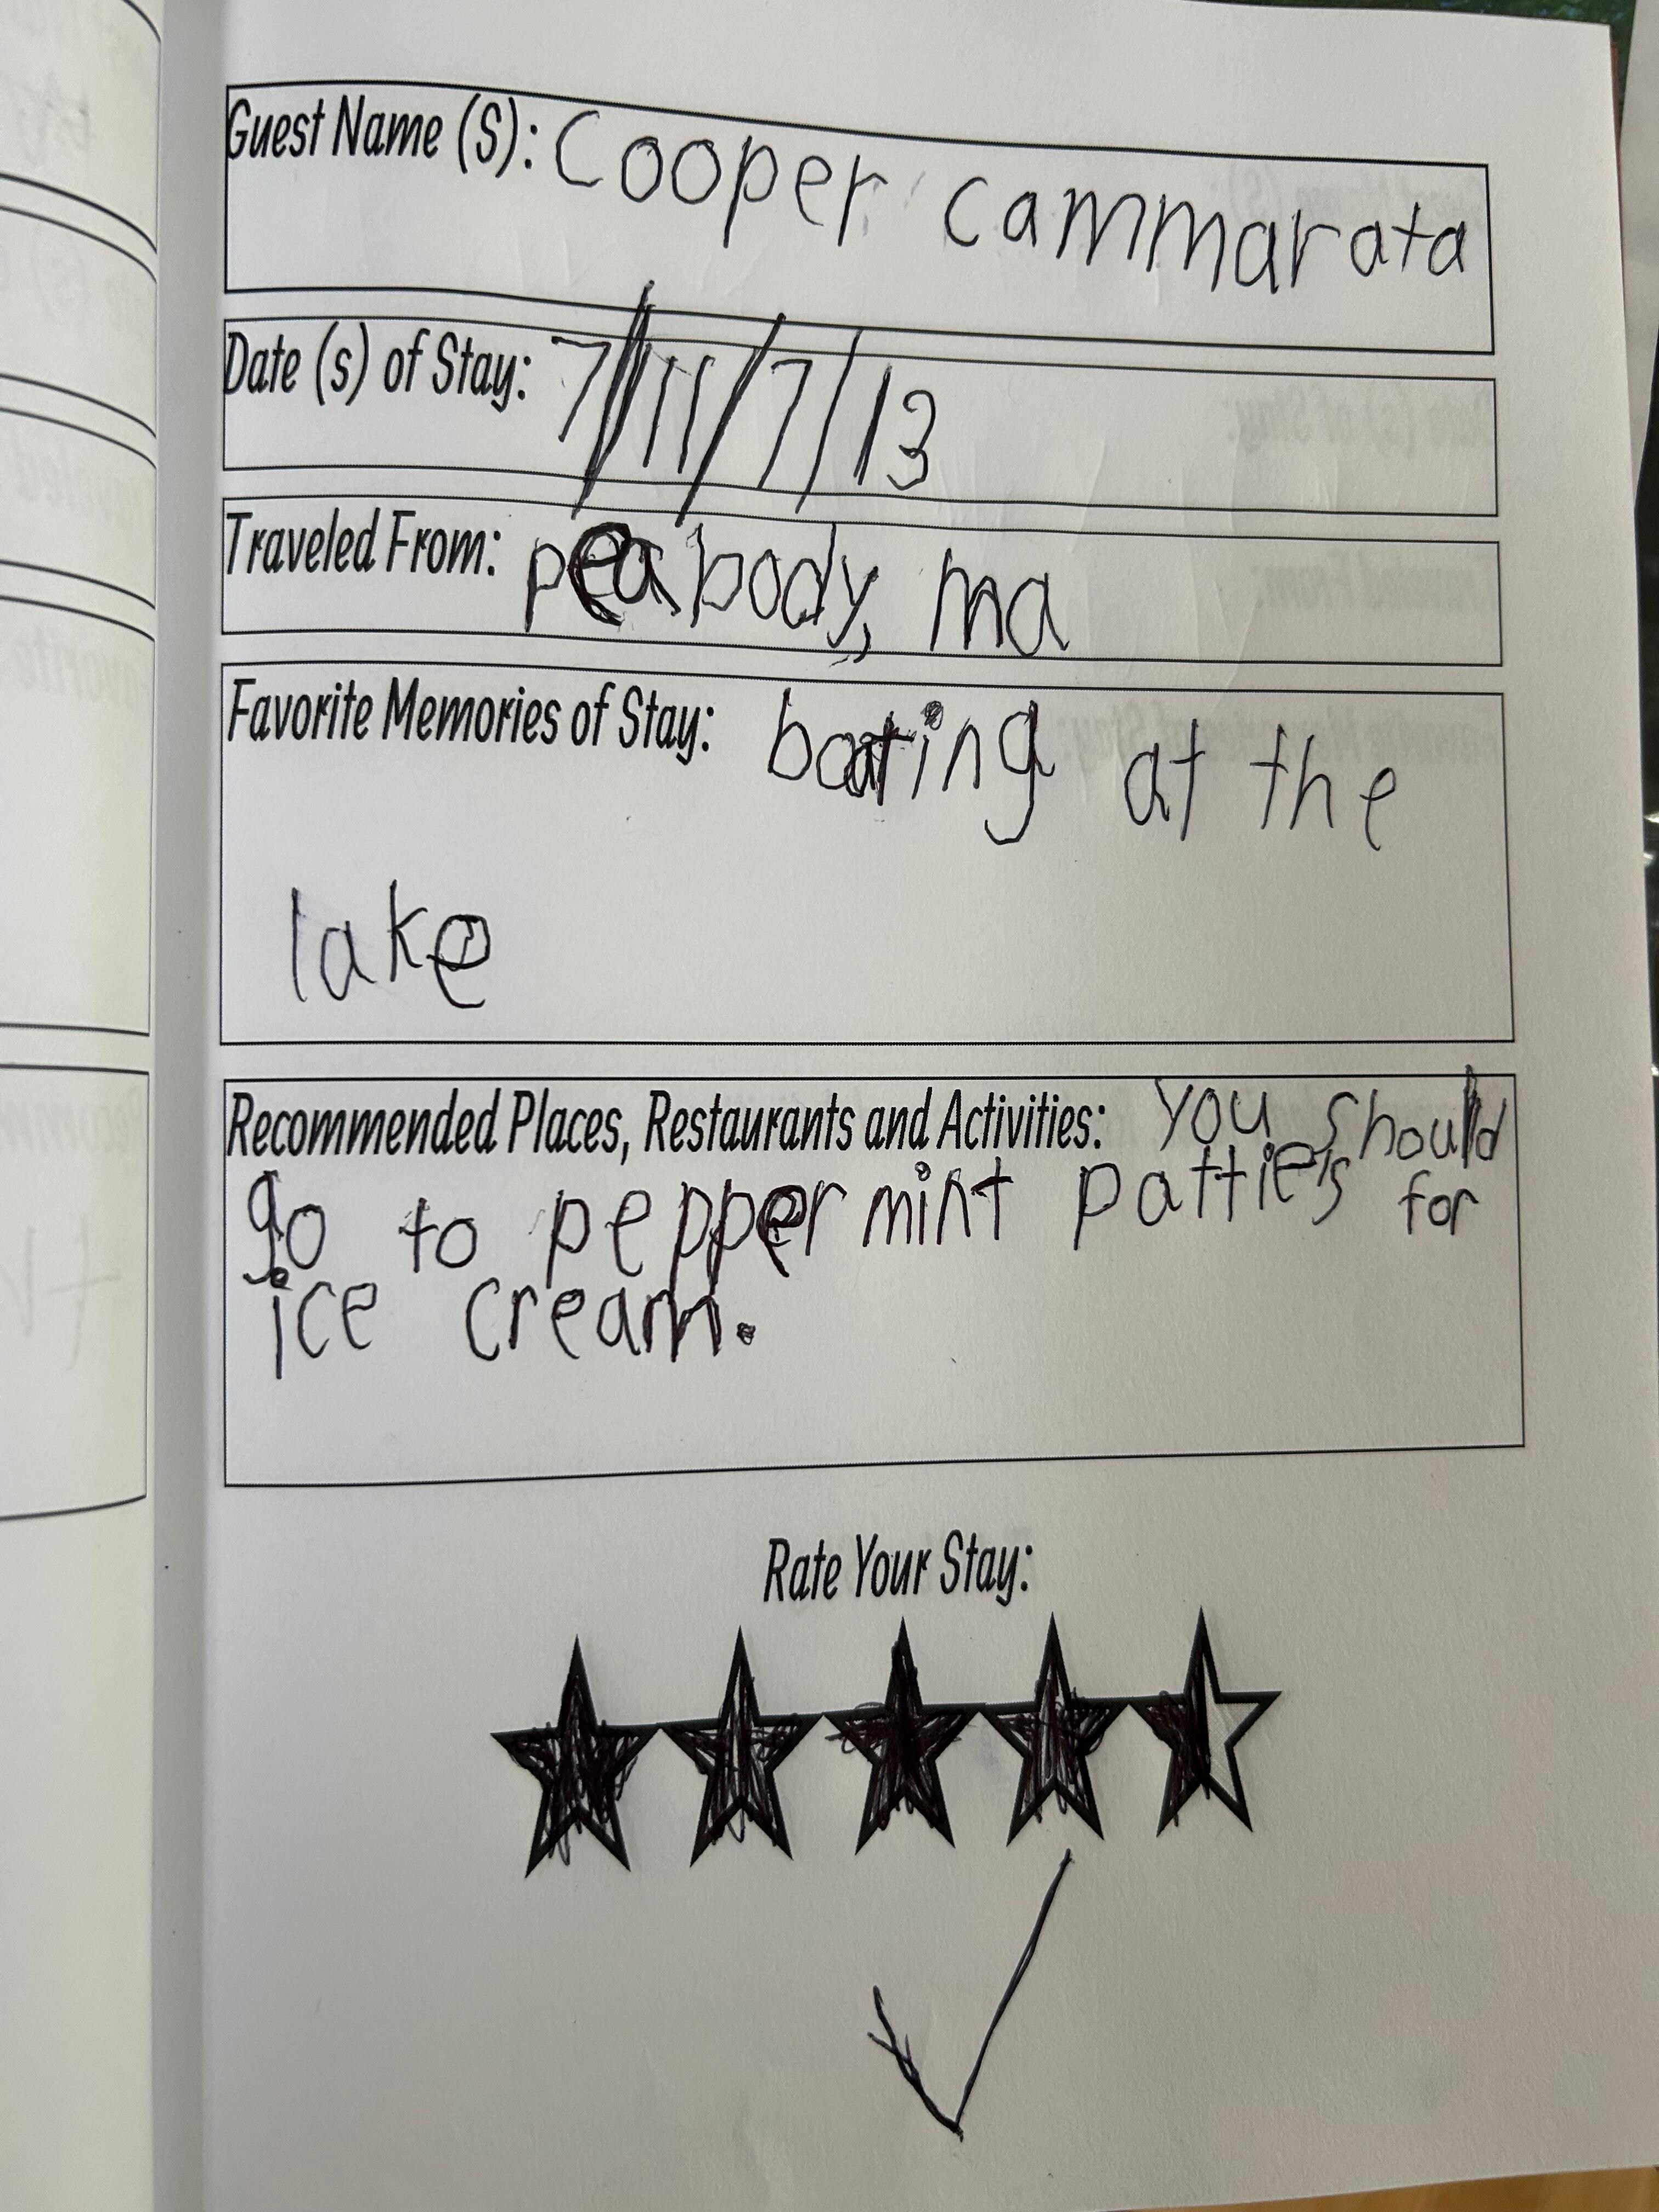 Guest Name (S): Cooper cammarata
Date (s) of Stay: 7/11/7/13
Traveled From: peabody, ma
Favorite Memories of Stay: boating at the
lake
Recommended Places, Restaurants and Activities: you should
go to peppermint pattie's for
ice cream.
Rate Your Stay: